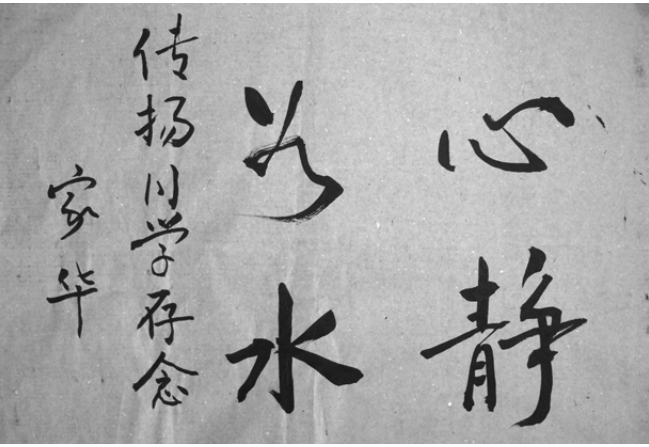 心静
若水
传扬同学存念
家华